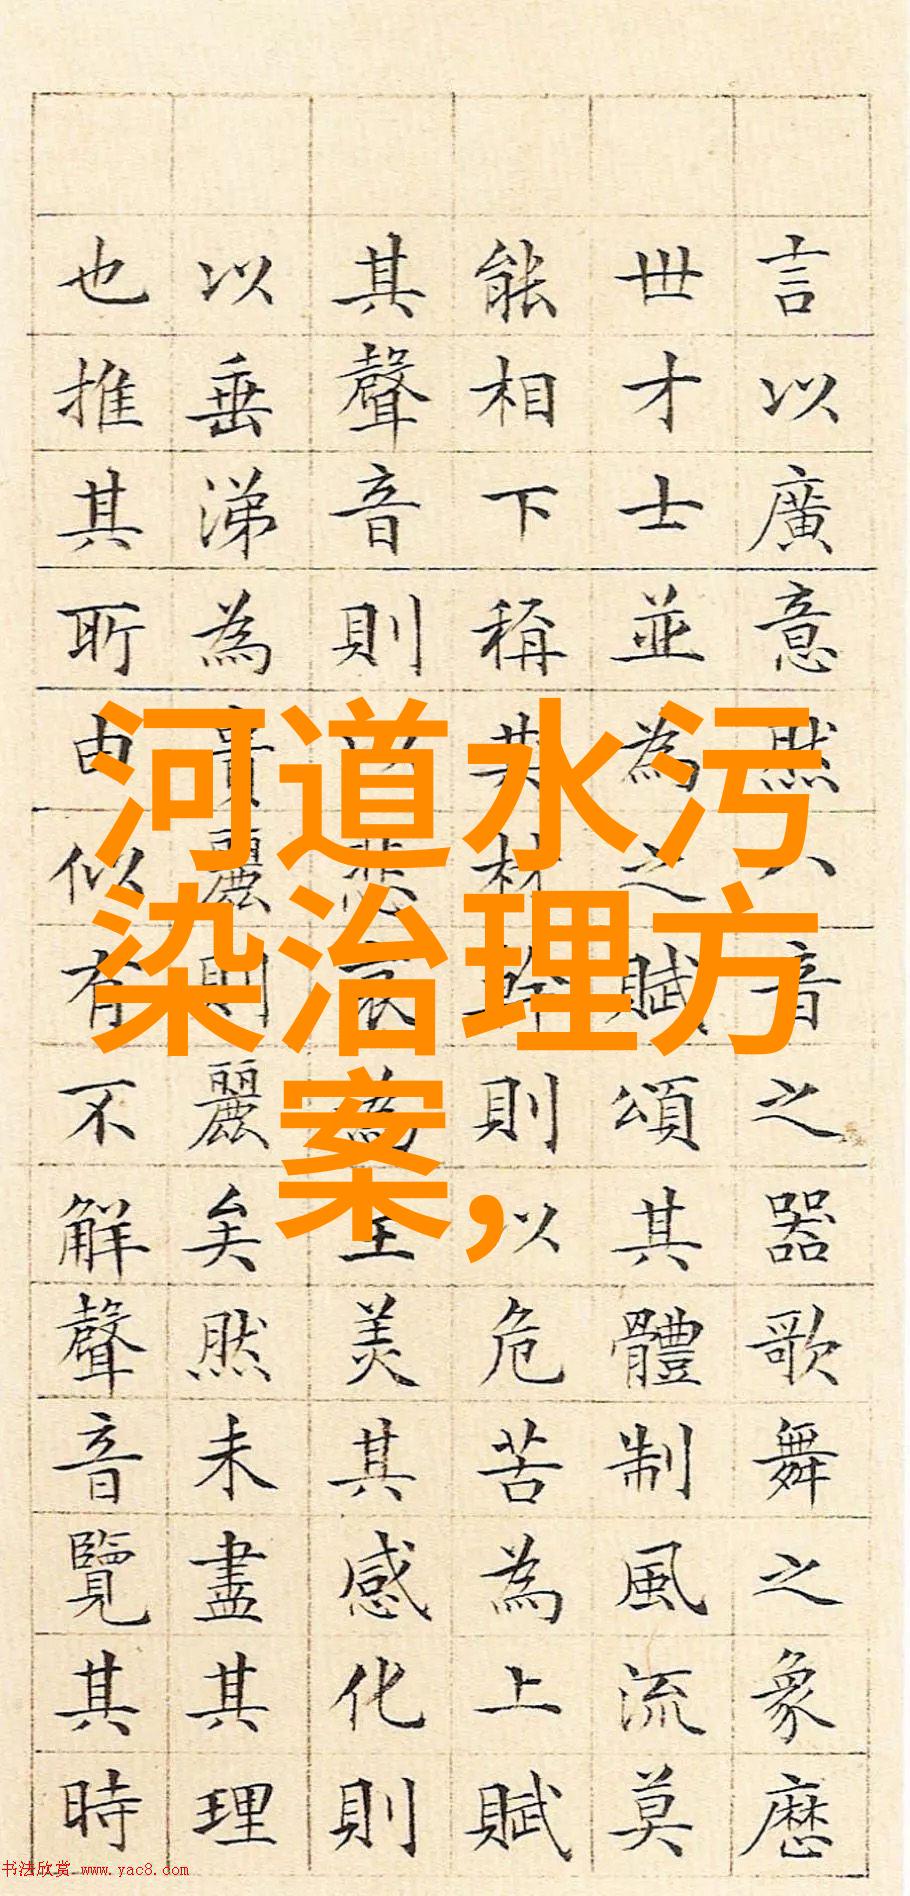 言以廣意然八音之器歌舞之象歷
世才士並為之賦頌其體制風流莫
能相下稱其材幹則以危苦為上賦
其聲音則以悲哀為主美其感化則
以垂涕為貴麗則麗矣然未盡其理
也推其所由似有不解聲音覽其時
河道水污
染治理方
案,
书法欣赏 www.yac8.com